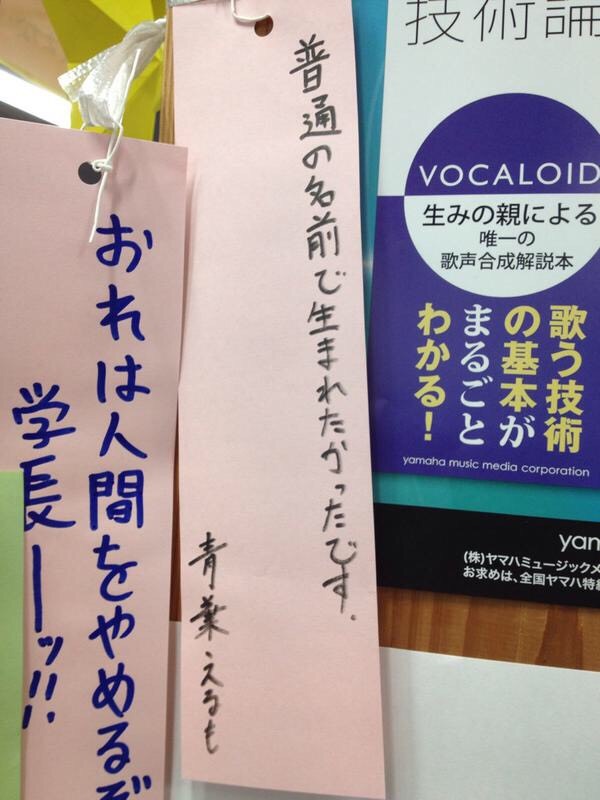 おれは人間をやめるぞ
学長ーッ!!
普通の名前で生まれたかったです。
青葉える も
技術論
VOCALOID
生みの親による
唯一の
歌声合成解説本
歌う技術
の基本が
まるごと
わかる!
yamaha music media corporation
yam
(株)ヤマハミュージックメ
お求めは、全国ヤマハ特約